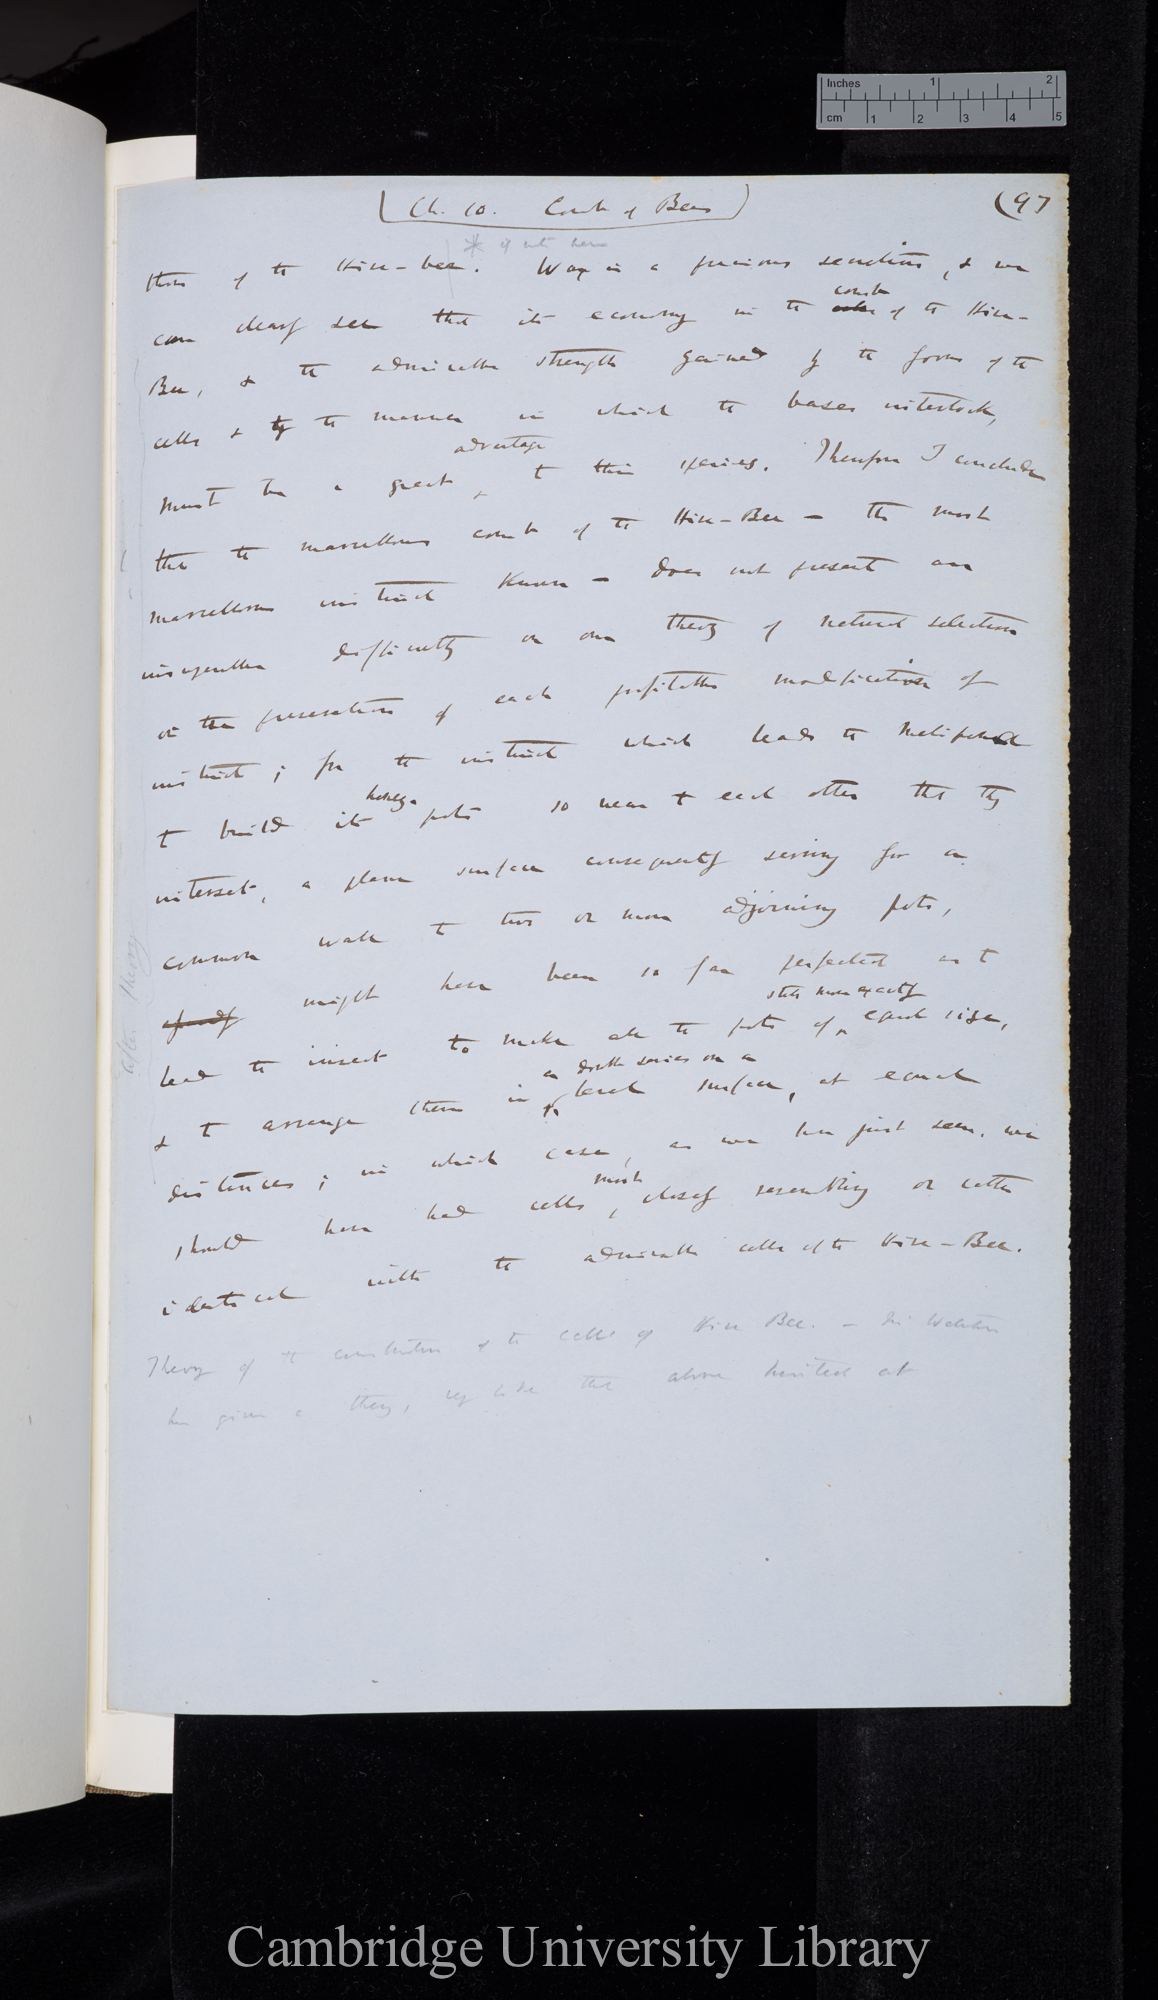 Inches 1 2
cm 1 2 3 4 5
(Ch. 10. Comb of Bees)
(97
those of the Hive-bee. Wax is a precious secretion, & we
can clearly see that its economy in the comb of the Hive-
Bee, & the admirable strength gained by the form of the
cells & by the manner in which the bases interlock,
must be a great advantage to this species. Therefore I conclude
that the marvellous comb of the Hive-Bee – the most
marvellous instinct known – does not present an
insuperable difficulty on our theory of natural selection
or the preservation of each profitable modification of
instinct; for the instinct which leads the Melipona
to build its honey-pots so near to each other that they
intersect, a plane surface consequently serving for a
common wall to two or more adjoining pots,
might have been so far perfected as to
lead the insect to make all the pots of still more exactly equal size,
& to arrange them in a double series on a level surface, at equal
distances; in which case, as we have just seen, we
should have had cells, most closely resembling or rather
identical with the admirable cells of the Hive-Bee.
Theory of the construction of the cells of Hive Bee. –
has given a theory, like that above hinted at
after theory
Cambridge University Library